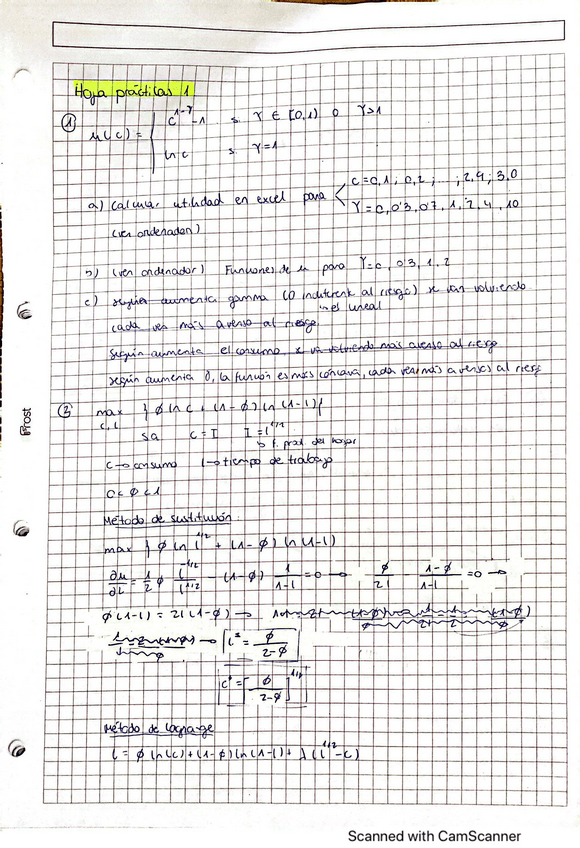 Hoja prácticas 1
① u(c) = { c^{1-γ} - 1 si γ ∈ [0,1) o γ>1
ln c si γ=1
a) Calcular utilidad en excel para < c=0,1 ; 0,2 ; ... ; 2,9 ; 3,0
γ=0, 0'3, 0'7, 1, 2, 4, 10
(ver ordenador)
b) (ver ordenador) Funciones de u para γ=0, 0'3, 1, 2
c) según aumenta gamma (0 indiferente al riesgo) se van volviendo
es lineal
cada vez más averso al riesgo.
Según aumenta el consumo, se va volviendo más averso al riesgo
según aumenta γ, la función es más cóncava, cada vez más aversos al riesgo
② max { φ ln c + (1-φ) ln (1-l) }
c, l
sa c = I I = l^{1/2}
↳ f. prod. del hogar
c → consumo l → tiempo de trabajo
0 < φ < 1
Método de sustitución:
max } φ ln l^{1/2} + (1-φ) ln (1-l)
∂u/∂l = 1/2 φ l^{-1/2}/l^{1/2} - (1-φ) 1/(1-l) = 0 → φ/2l - (1-φ)/(1-l) = 0 →
φ(1-l) = 2l(1-φ) →
→ l* = φ/(2-φ)
c* = [φ/(2-φ)]^{1/2}
Método de lagrange
L = φ ln(c) + (1-φ) ln(1-l) + λ (l^{1/2} - c)
Frost
Scanned with CamScanner